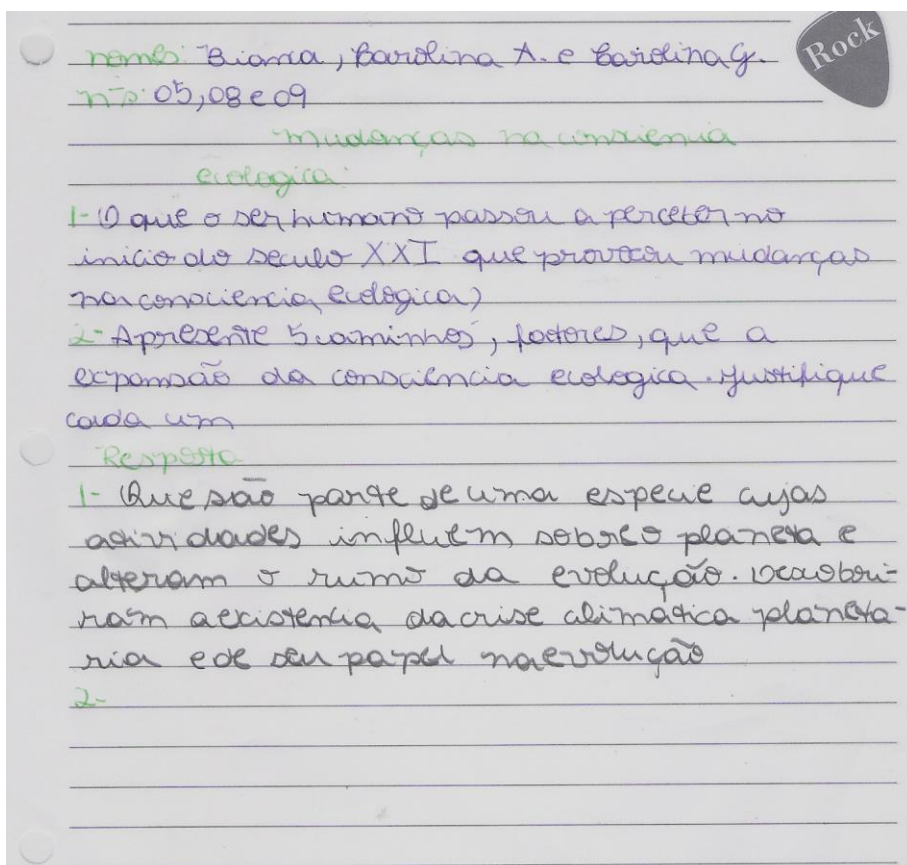 Rock
nomes: Bianca, Carolina A. e Carolina G.
nºs: 05, 08 e 09
mudanças na consciencia
ecologica:
1- O que o ser humano passou a perceber no
inicio do seculo XXI que provocou mudanças
na consciencia ecológica?
2- Apresente 5 caminhos, fatores, que a
expansão da consciência ecologica. Justifique
cada um
Resposta
1- Que são parte de uma especie cujas
atividades influem sobre o planeta e
alteram o rumo da evolução. Descobri-
ram a existencia da crise climática planeta-
ria e de seu papel na evolução
2-